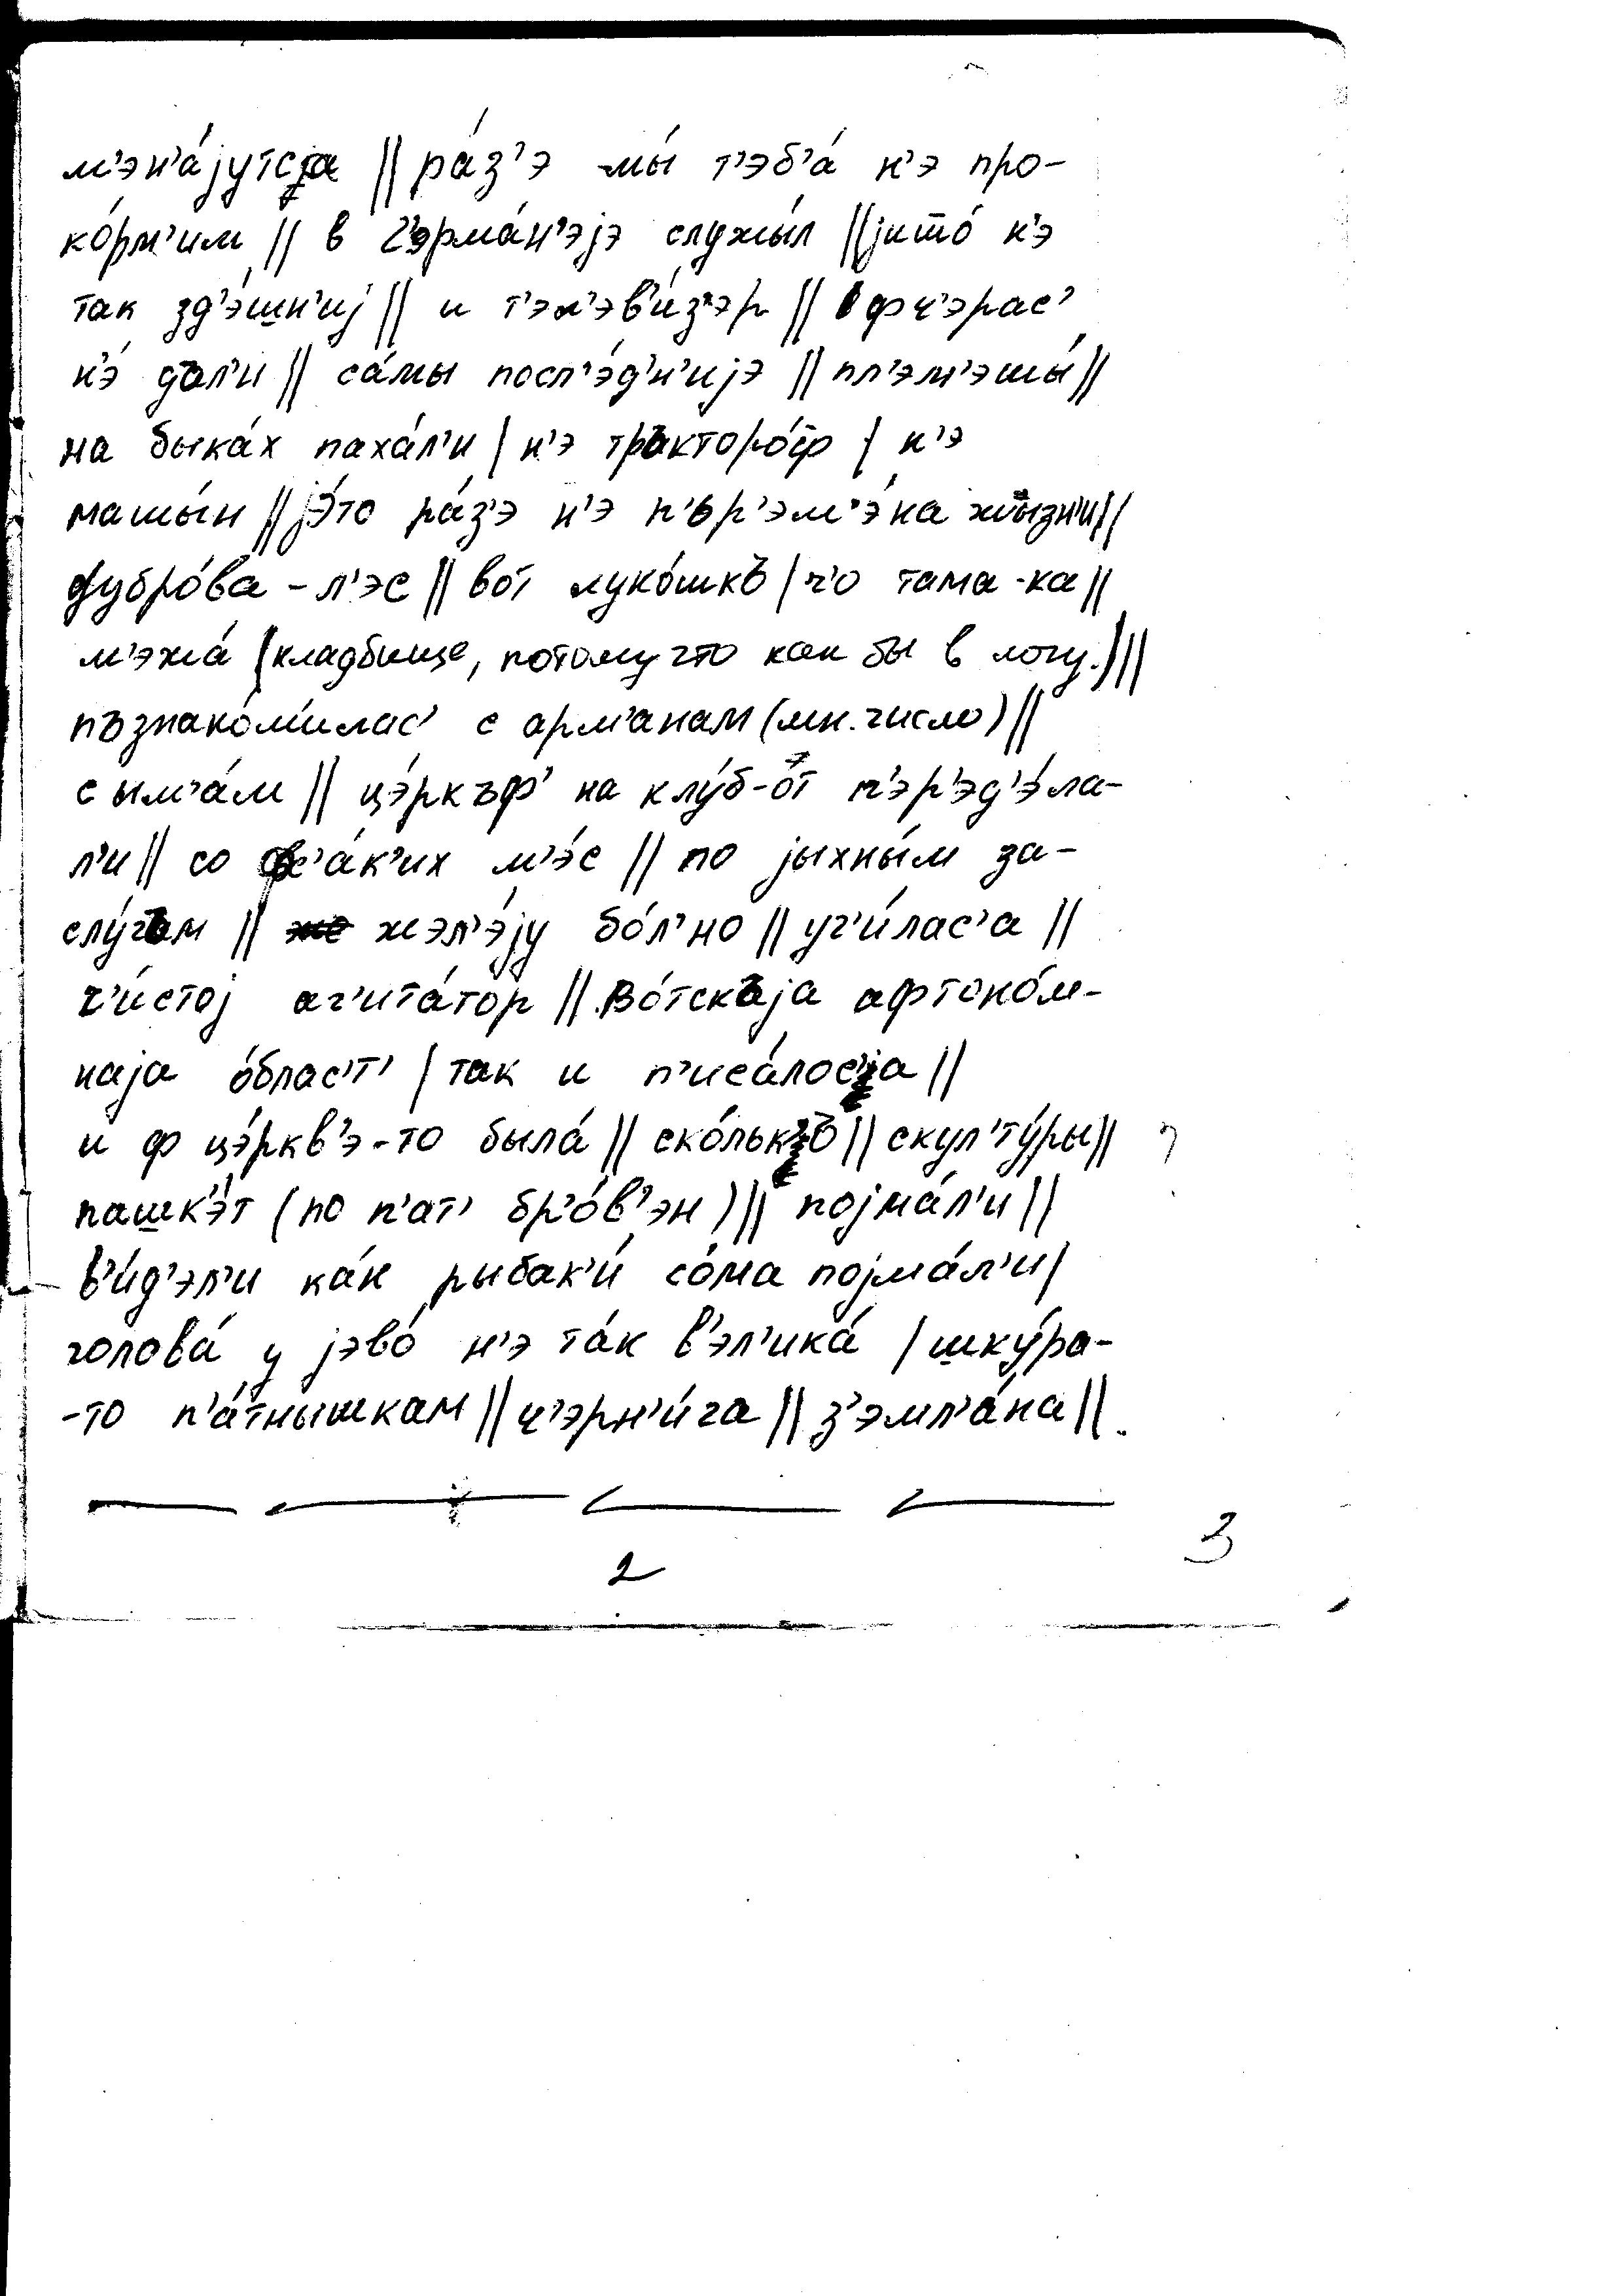 м'эн'а́јутсја || ра́з'э мы́ т'эб'а́ н'э про-
ко́рм'им || в г'эрма́н'эјэ служы́л || јито́ н'э
так зд'э́шн'иј || и т'эл'эв'и́з'эр || фч'эрас'
н'э́ дал'и || са́мы посл'э́д'н'ијэ || пл'эм'эшы́ ||
на быка́х паха́л'и | н'э тракторо́ф | н'э
машы́н || јэ́то ра́з'э н'э п'ър'эм'э́на жы́зн'и ||
дубро́ва - л'эс || во́т луко́шкъ | ч'о тама-ка ||
м'эжа́ (кладбище, потому что как бы в логу.) ||
пъзнако́м'илас' с арм'анам (мн. число) ||
с ым'а́м || цэ́ркъф' на клу́б-о́т п'эр'эд'э́ла-
л'и || со фс'а́к'их м'э́с || по јыхны́м за-
слу́гам || жэл'э́ју бо́л'но || уч'и́лас'а ||
ч'и́стој аг'ита́тор || Во́тскаја афтоно́м-
наја о́блас'т' | так и п'иса́лос'а ||
и ф цэ́ркв'э-то была́ || ско́лькъ || скул'ту́ры ||
пашк'э́т (по п'ат' бр'о́в'эн) || појма́л'и ||
в'и́д'эл'и ка́к рыбак'и́ со́ма појма́л'и |
голова́ у јэво́ н'э та́к в'эл'ика́ | шку́ра-
-то п'а́тнышкам || ч'эрн'и́га || з'эмл'а́на ||
2
3